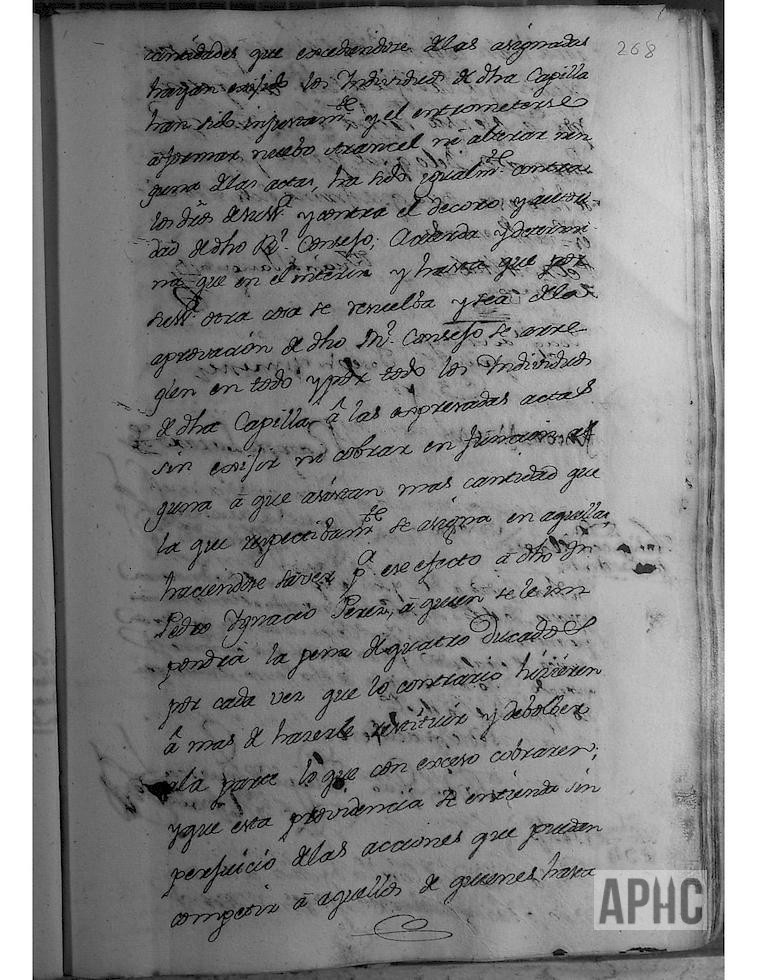 268
cantidades que excediendose de las asignadas
hayan exijido los Individuos de dha Capilla
han sido injustam.te y el entrometerse
a formar nuebo Arancel ni alterar nin
guna de las actas, ha sido igualm.te contra
los dros de su M. y contra el decoro y autori
dad de dho R.l Consejo; Acuerda y determi
na que en el interin y hasta que por
su M. otra cosa se resuelba y sea de la
aprovacion de dho R.l Consejo se arre
glen en todo y por todo los Individuos
de dha Capilla, â las expresadas actas
sin exijir ni cobrar en funcion al
guna â que asistan mas cantidad que
la que respectibam.te se asigna en aquellas,
haciendose saver p.a ese efecto â dho Dn
Pedro Ygnacio Perez, â quien se le im
pondrá la pena de quatro Ducados
por cada vez que lo contrario hizieren
â mas de hazerle restituir y debolber
a la parte lo que con exceso cobraren;
y que esta providencia se entienda sin
perjuicio de las acciones que puedan
competir â aquellos de quienes hasta
APHC